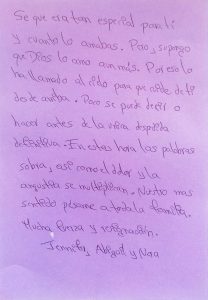 Se que era tan especial para ti
y cuanto lo amabas. Pero, supongo
que Dios lo amo aun más. Por eso lo
ha llamado al cielo para que cuide de ti
desde arriba. Poco se puede decir o
hacer antes de la única despedida
definitiva. En estas hora las palabras
sobra, así como el dolor y la
angustia se multiplican. Nuestro mas
sentido pésame a toda la familia.
Mucha fuerza y resignación.
Jennifer, Abigail y Nora